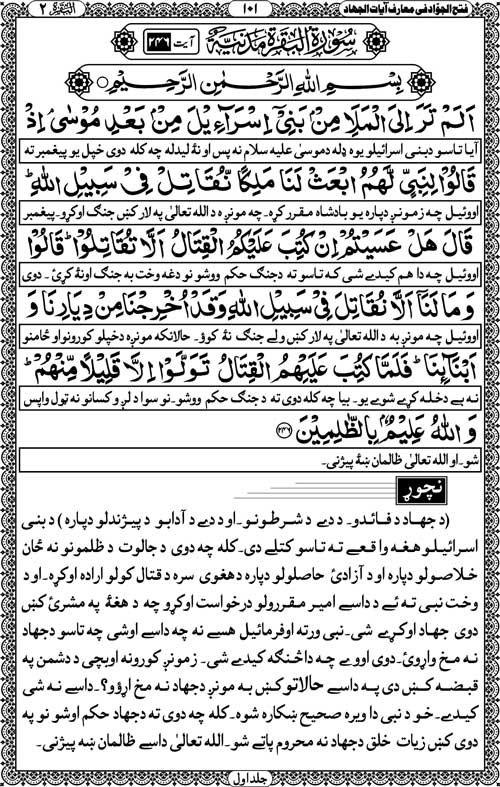 فتح الجوّاد فی معارف آیات الجهاد ۱۰۱ البقرة ۲
سُوْرَةُ الْبَقَرَةِ مَدَنِيَّةٌ آیت ۲۴۶
بِسْمِ اللهِ الرَّحْمٰنِ الرَّحِيْمِ
اَلَمْ تَرَ اِلَى الْمَلَاِ مِنْ بَنِيْٓ اِسْرَآءِيْلَ مِنْ بَعْدِ مُوْسٰى اِذْ
آیا تاسو د بنی اسرائیلو یوه ډله د موسیٰ علیه سلام نه پس اونۀ لیدله چه کله دوی خپل یو پیغمبر ته
قَالُوْا لِنَبِيٍّ لَّهُمُ ابْعَثْ لَنَا مَلِكًا نُّقَاتِلْ فِيْ سَبِيْلِ اللهِ
اووئیل چه زمونږ دپاره یو بادشاه مقرر کړه. چه مونږه د الله تعالیٰ په لار کښ جنګ اوکړو. پیغمبر
قَالَ هَلْ عَسَيْتُمْ اِنْ كُتِبَ عَلَيْكُمُ الْقِتَالُ اَلَّا تُقَاتِلُوْا قَالُوْا
اووئیل چه دا هم کیدے شی که تاسو ته د جنګ حکم ووشو نو دغه وخت به جنګ اونۀ کړئ. دوی
وَمَا لَنَآ اَلَّا نُقَاتِلَ فِيْ سَبِيْلِ اللهِ وَقَدْ اُخْرِجْنَا مِنْ دِيَارِنَا وَ
اووئیل چه مونږ به د الله تعالیٰ په لار کښ ولے جنګ نۀ کوؤ. حالانکه مونږه د خپلو کورونو او ځامنو
اَبْنَآئِنَا فَلَمَّا كُتِبَ عَلَيْهِمُ الْقِتَالُ تَوَلَّوْا اِلَّا قَلِيْلًا مِّنْهُمْ
نه بے دخله کړے شوے یو. بیا چه کله دوی ته د جنګ حکم ووشو. نو سوا د لږو کسانو نه ټول واپس
وَاللهُ عَلِيْمٌۢ بِالظّٰلِمِيْنَ ۲۴۶
شو. او الله تعالیٰ ظالمان ښۀ پیژنی.
نچوړ
(د جهاد د فائدو. د دے د شرطونو. او د دے د آدابو د پیژندلو دپاره) د بنی
اسرائیلو هغه واقعے ته تاسو کتلے دی. کله چه دوی د جالوت د ظلمونو نه ځان
خلاصولو دپاره او د آزادئ حاصلولو دپاره د هغوی سره د قتال کولو اراده اوکړه. او د
وخت نبی ته ئے د داسے امیر مقررولو درخواست اوکړو چه د هغۀ په مشرئ کښ
دوی جهاد اوکړے شی. نبی ورته اوفرمائیل هسے نه چه داسے اوشی چه تاسو د جهاد
نه مخ واړوئ. دوی اووے چه دا څنګه کیدے شی. زمونږ کورونه اوبچی د دشمن په
قبضه کښ دی په داسے حالاتو کښ به مونږ د جهاد نه مخ اړؤو؟. داسے نه شی
کیدے. خو د نبی دا ویره صحیح ښکاره شوه. کله چه دوی ته د جهاد حکم اوشو نو په
دوی کښ زیات خلق د جهاد نه محروم پاتے شو. الله تعالیٰ داسے ظالمان ښه پیژنی.
جلد اول